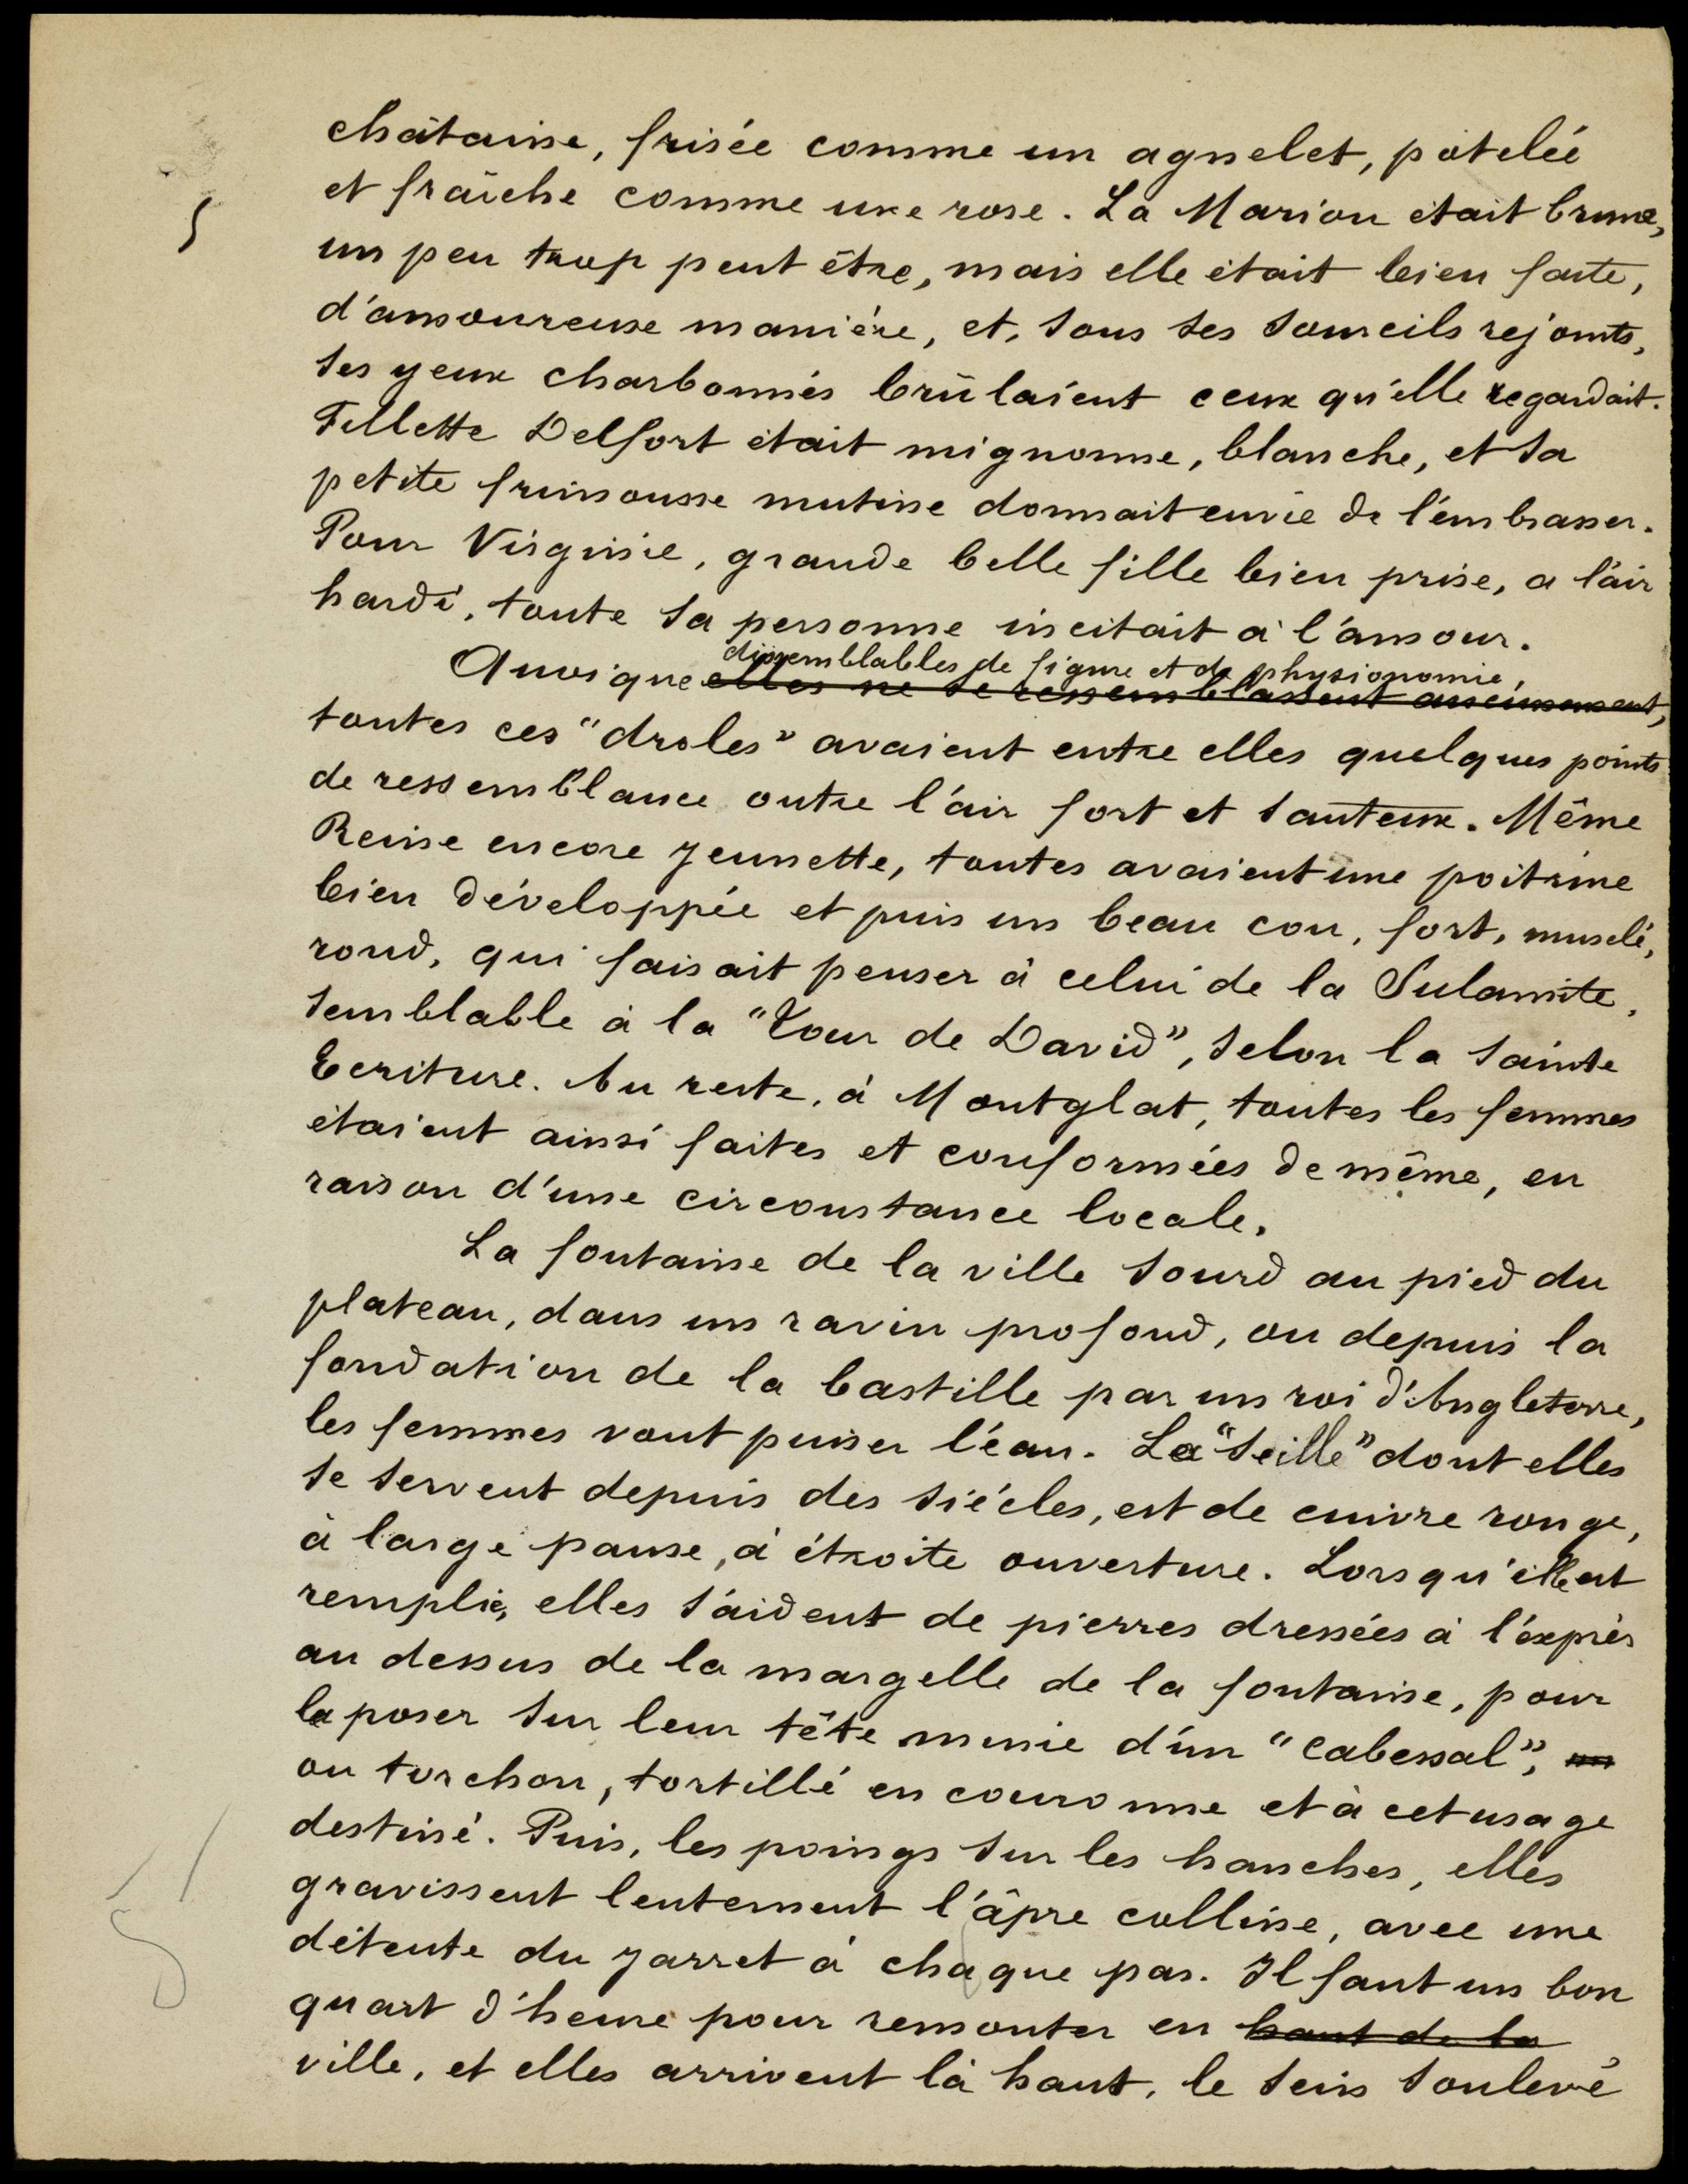 châtaine, frisée comme un agnelet, potelée
et fraîche comme une rose. La Marion était brune,
un peu trop peut être, mais elle était bien faite,
d'amoureuse manière, et, sous ses sourcils rejoints,
ses yeux charbonnés brûlaient ceux qu'elle regardait.
Fillette Delfort était mignonne, blanche, et sa
petite frimousse mutine donnait envie de l'embrasser.
Pour Virginie, grande belle fille bien prise, a l'air
hardi, toute sa personne incitait à l'amour.
dissemblables de figure et de physionomie,
Quoique elles ne se ressemblassent aucunement,
toutes ces "droles" avaient entre elles quelques points
de ressemblance outre l'air fort et santeux. Même
Reine encore jeunette, toutes avaient une poitrine
bien développée et puis un beau cou, fort, musclé,
rond, qui faisait penser à celui de la Sulamite,
semblable à la "Tour de David", selon la Sainte
Ecriture. Au reste, à Montglat, toutes les femmes
étaient ainsi faites et conformées de même, en
raison d'une circonstance locale.
La fontaine de la ville sourd au pied du
plateau, dans un ravin profond, ou depuis la
fondation de la bastille par un roi d'Angleterre,
les femmes vont puiser l'eau. La "seille" dont elles
se servent depuis des siécles, est de cuivre rouge,
à large panse, à étroite ouverture. Lorsqu'elle est
remplie, elles s'aident de pierres dressées à l'exprès
au dessus de la margelle de la fontaine, pour
la poser sur leur tête munie d'un "cabessal", un
ou torchon, tortillé en couronne et à cet usage
destiné. Puis, les poings sur les hanches, elles
gravissent lentement l'âpre colline, avec une
détente du jarret à chaque pas. Il faut un bon
quart d'heure pour remonter en haut de la
ville, et elles arrivent là haut, le sein soulevé